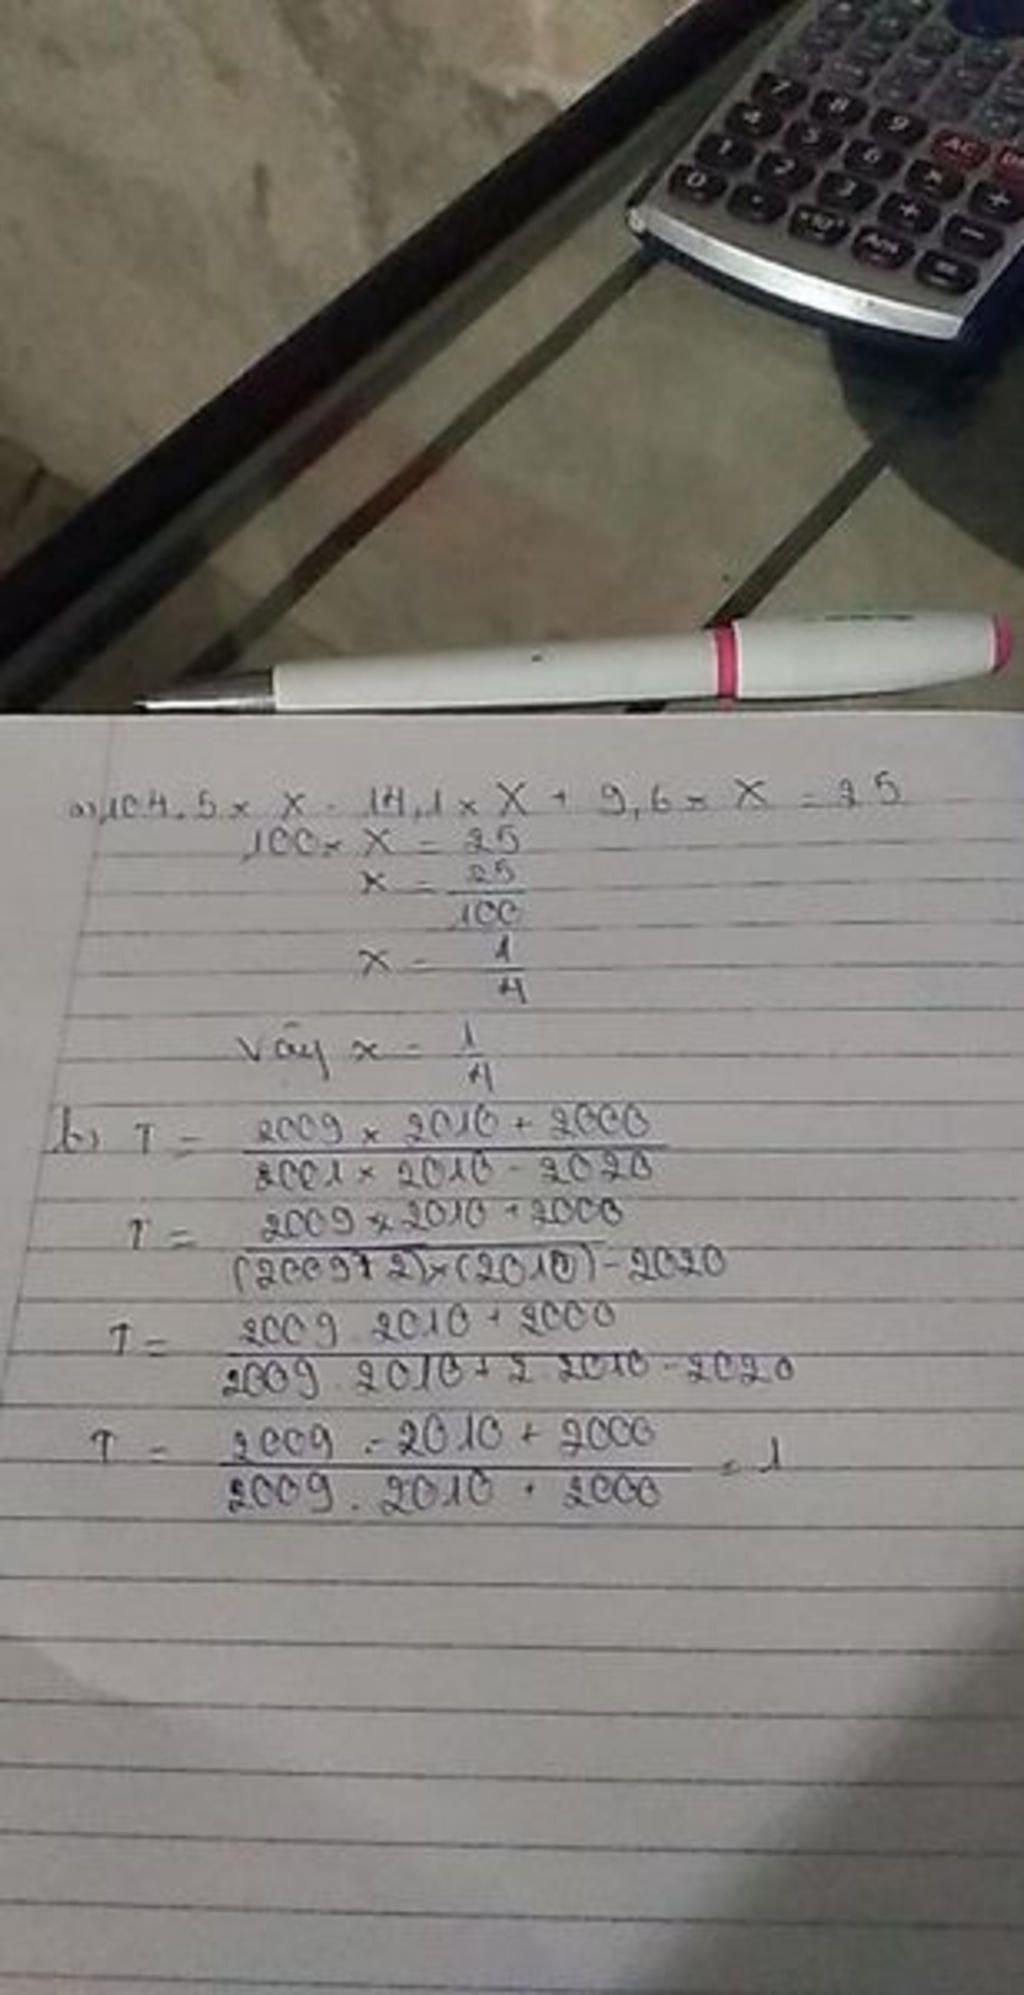 7 8 9 AC
4 5 6 × ÷
1 2 3 + −
0 . Ans =
a) 104,5 × X - 14,1 × X + 9,6 × X = 25
100 × X = 25
x = 25
100
x = 1
4
Vậy x = 1
4
b) T = 2009 × 2010 + 2000
2001 × 2010 - 2020
T = 2009 × 2010 + 2000
(2009 + 2) × (2010) - 2020
T = 2009 . 2010 + 2000
2009 . 2010 + 2 . 2010 - 2020
T = 2009 . 2010 + 2000 = 1
2009 . 2010 + 2000